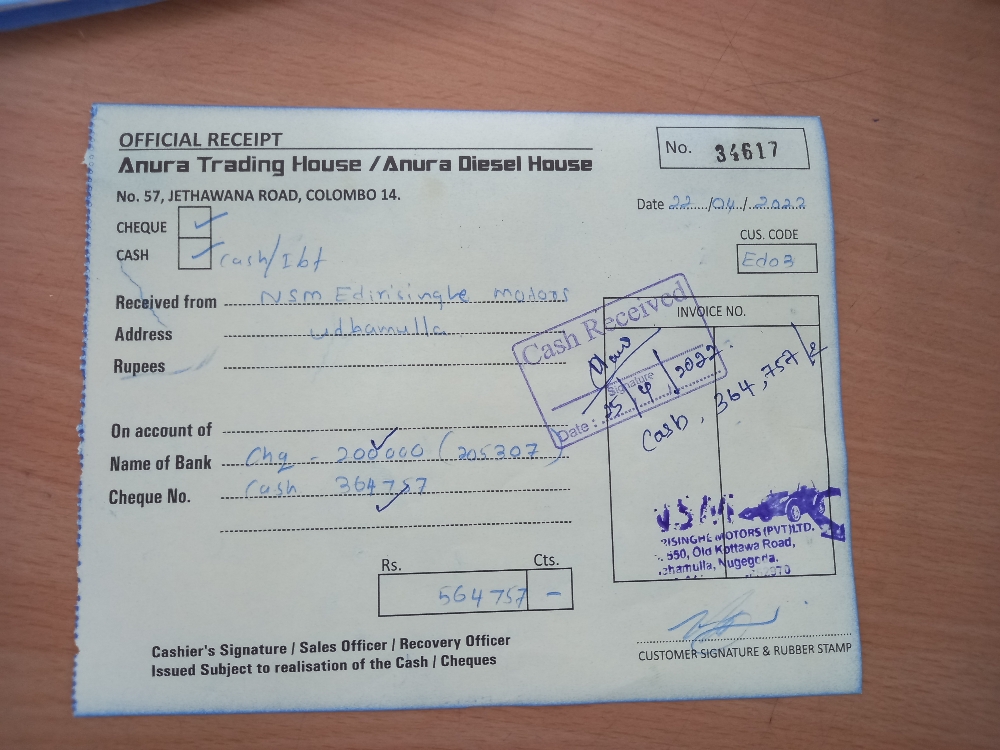 OFFICIAL RECEIPT
Anura Trading House / Anura Diesel House
No. 57, JETHAWANA ROAD, COLOMBO 14.
No. 34617
Date 22/04/2022
CHEQUE
CASH Cash/Ibt
CUS. CODE
Ed03
Received from NSM Edirisinghe motors
Address udhamulla
Rupees
On account of
Name of Bank Chq - 200000 (205307)
Cheque No. Cash 364757
INVOICE NO.
Cash, 364,757/=
Cash Received
Signature
Date: 25/4/2022
Rs. Cts.
564757 -
NSM
RISINGHE MOTORS (PVT) LTD.
550, Old Kottawa Road,
hamulla, Nugegoda.
Cashier's Signature / Sales Officer / Recovery Officer
Issued Subject to realisation of the Cash / Cheques
CUSTOMER SIGNATURE & RUBBER STAMP